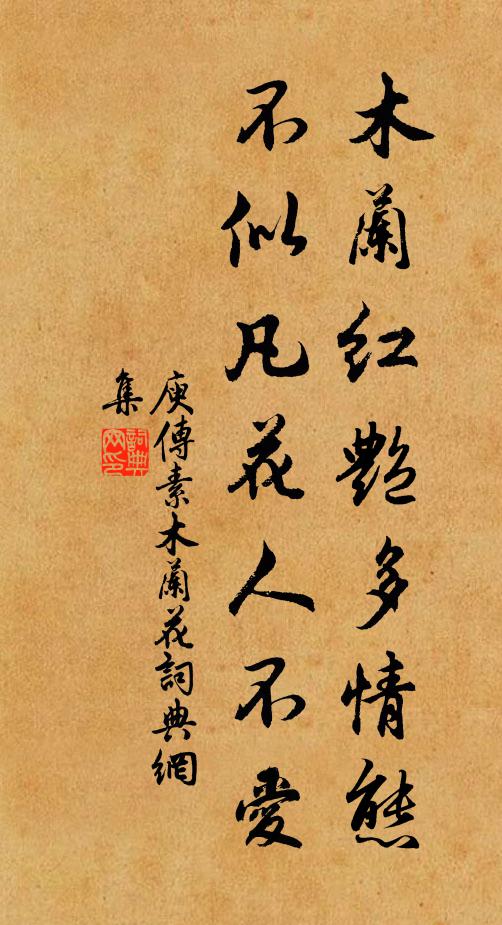 木蘭红艷多情態
不似凡花人不愛
庾傳素木蘭花詞典網
集
詞典網印